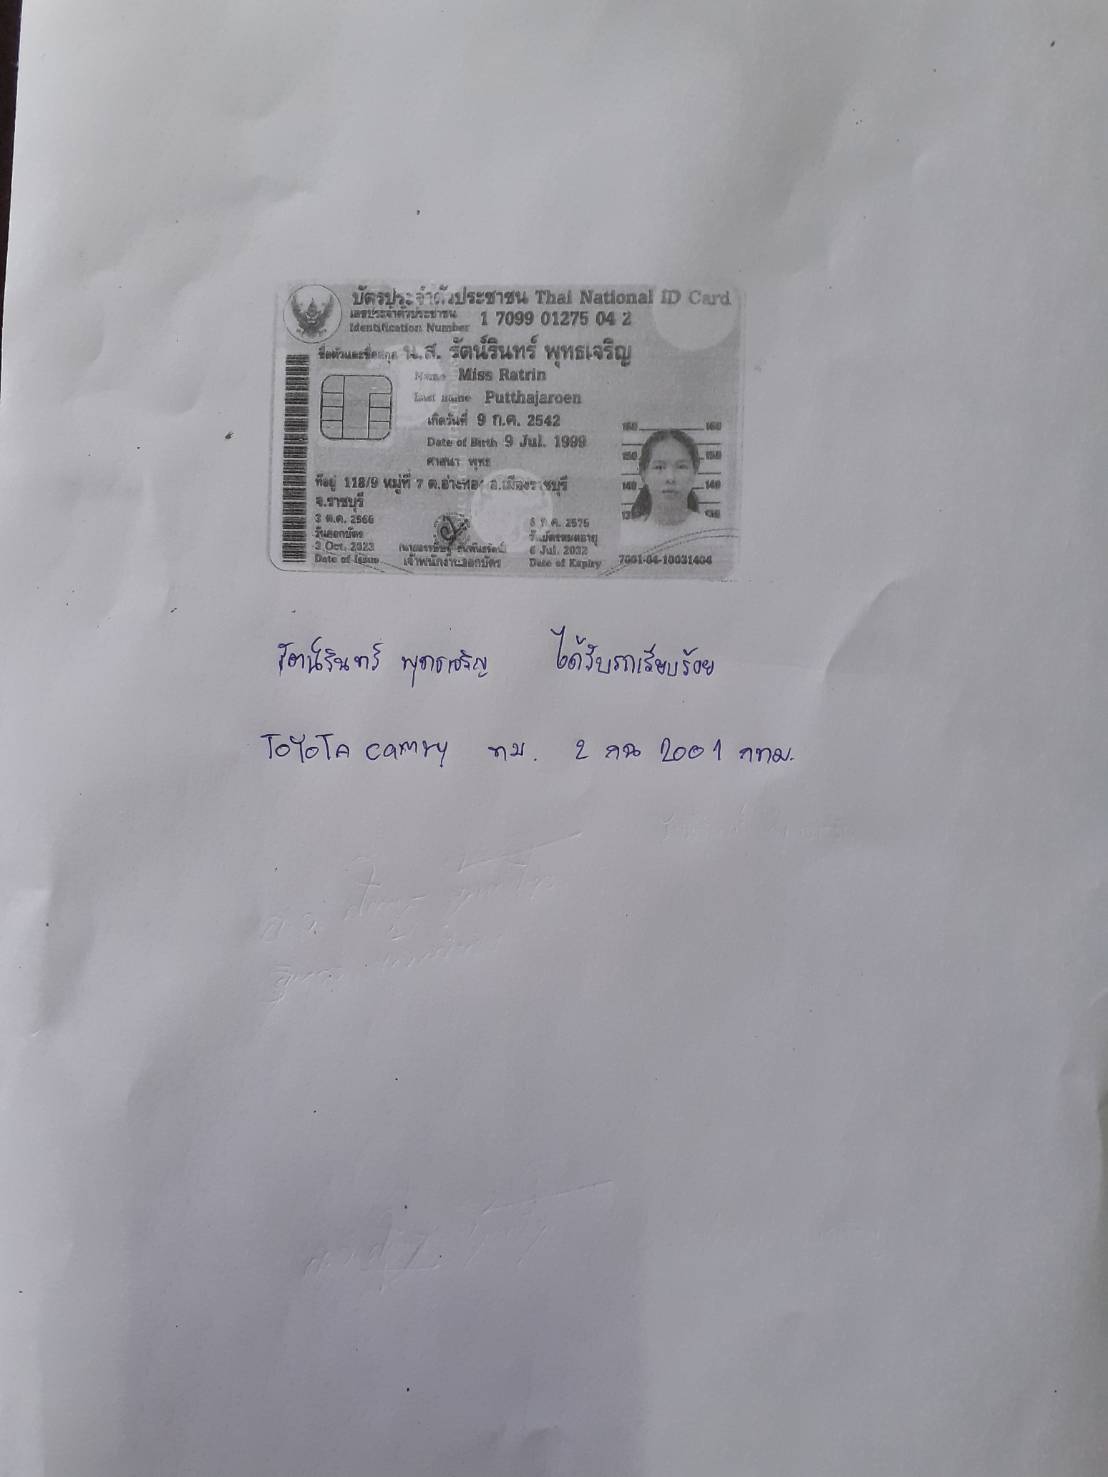 บัตรประจำตัวประชาชน Thai National ID Card
เลขประจำตัวประชาชน
Identification Number 1 7099 01275 04 2
ชื่อตัวและชื่อสกุล น.ส. รัตน์รินทร์ พุทธเจริญ
Name Miss Ratrin
Last name Putthajaroen
เกิดวันที่ 9 ก.ค. 2542
Date of Birth 9 Jul. 1999
ศาสนา พุทธ
ที่อยู่ 118/9 หมู่ที่ 7 ต.อ่างทอง อ.เมืองราชบุรี
จ.ราชบุรี
3 ต.ค. 2566
วันออกบัตร
3 Oct. 2023
Date of Issue
เจ้าพนักงานออกบัตร
ก.ค. 2575
วันบัตรหมดอายุ
Jul. 2032
Date of Expiry
160 160
150 150
140 140
7001-04-10031404
รัตน์รินทร์ พุทธเจริญ ได้รับรถเรียบร้อย
TOYOTA camry ทบ. 2 กฉ 2001 กทม.